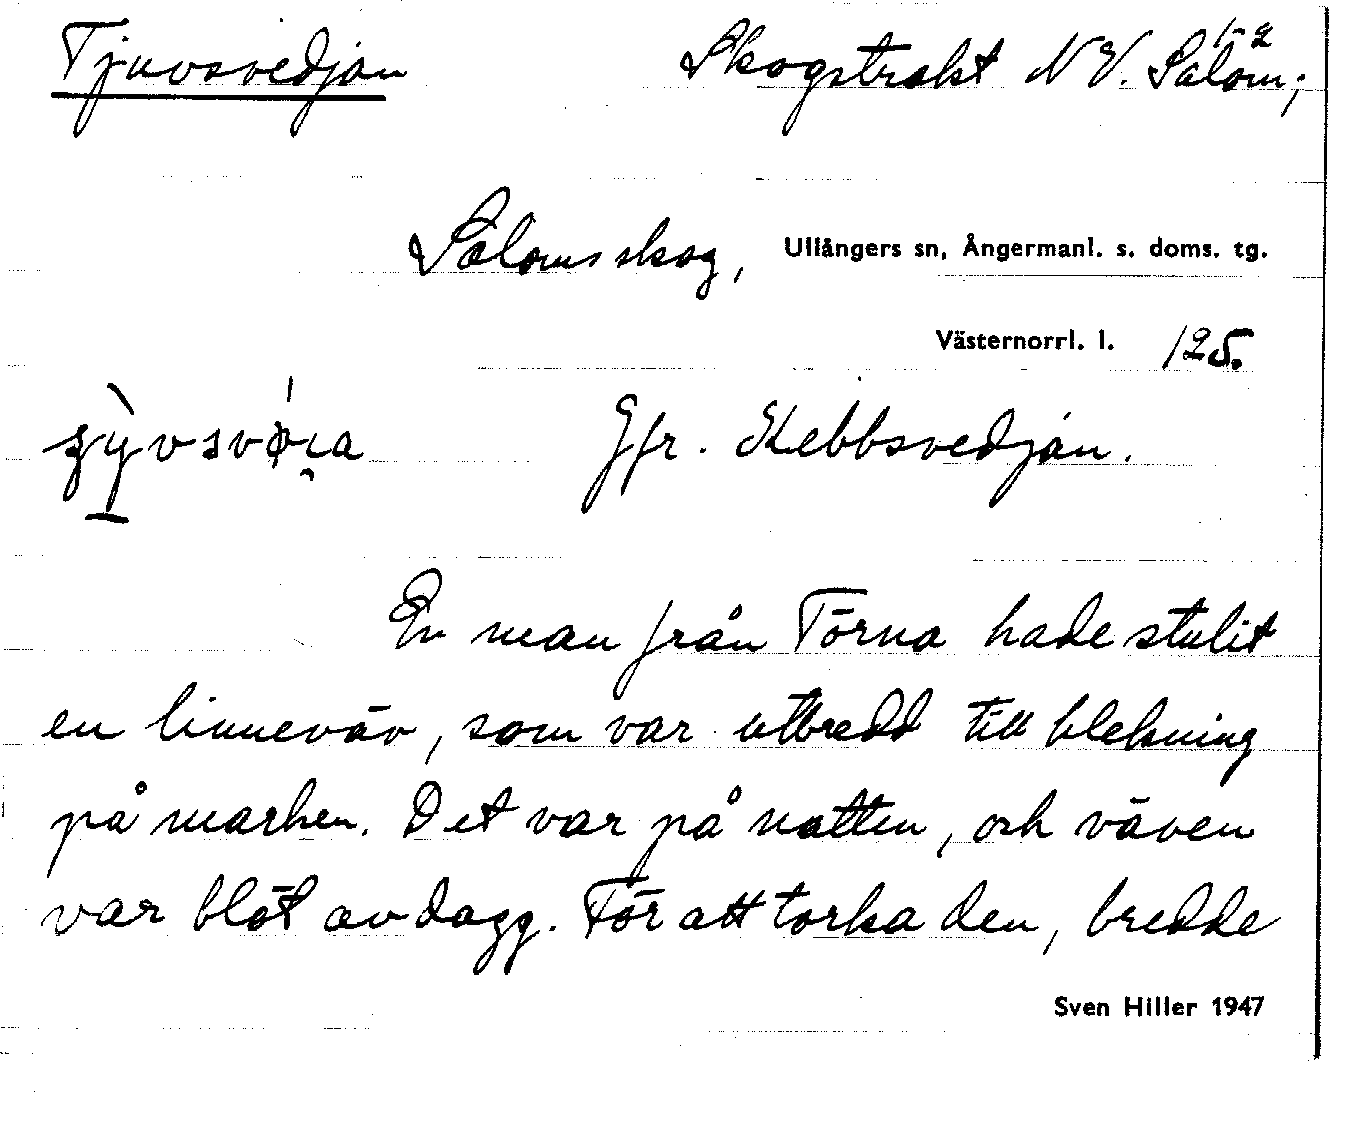 Tjuvsvedjan Skogstrakt N V. Salom 1-2;
Salomsskog, Ullångers sn, Ångermanl. s. doms. tg.
Västernorrl. l. 125.
Jfr. Stebbsvedjan.
En man från Törna hade stulit
en linneväv, som var utbredd till blekning
på marken. Det var på natten, och väven
var blöt av dagg. För att torka den, bredde
Sven Hiller 1947